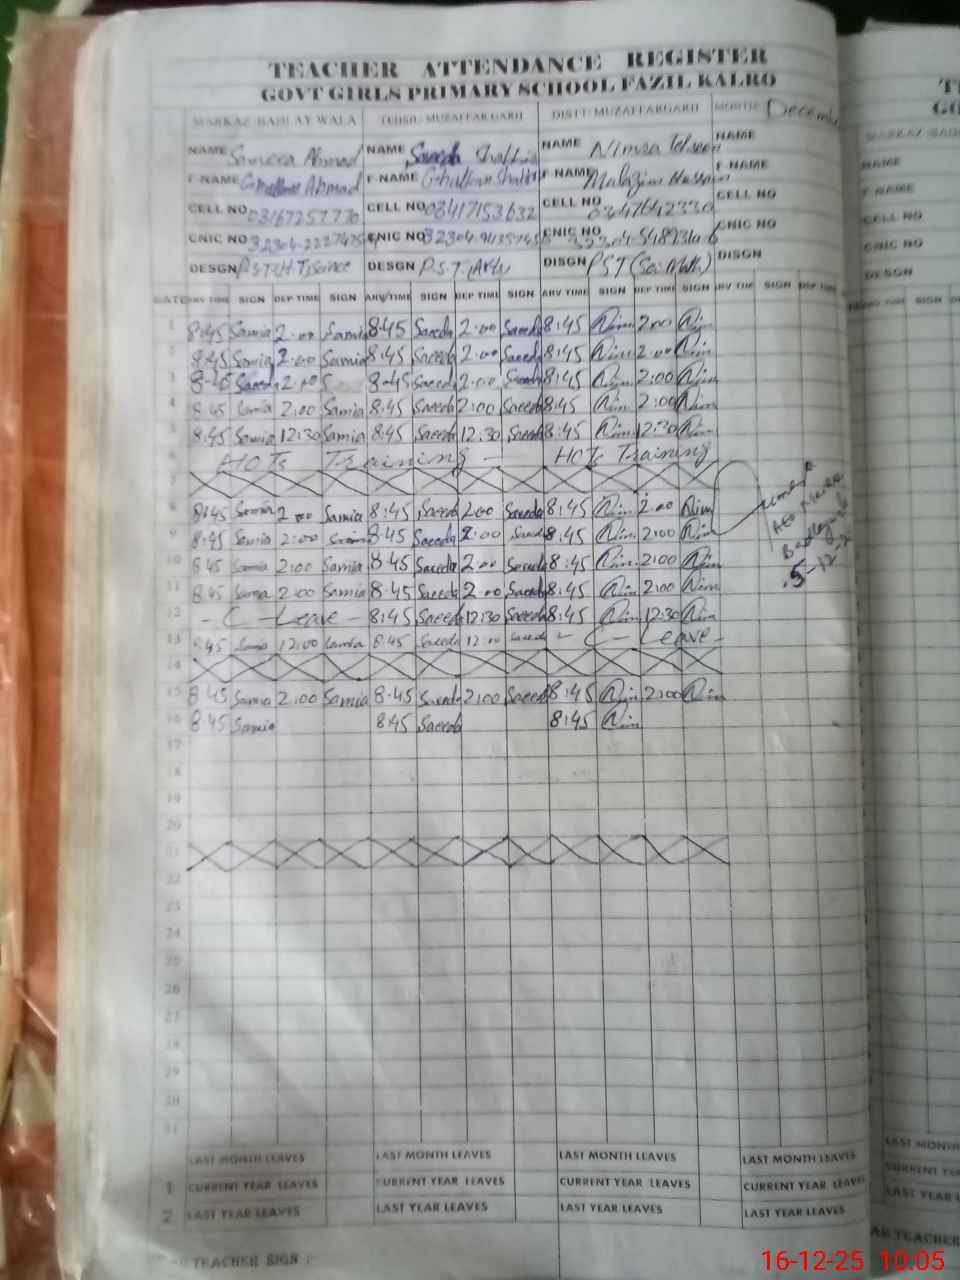 TEACHER ATTENDANCE REGISTER
GOVT GIRLS PRIMARY SCHOOL FAZIL KALRO
MARKAZ BADLAY WALA TEHSIL MUZAFFAR GARH DISTT MUZAFFARGARH MONTH December
NAME Sameea Ahmad NAME Saeeda NAME Nimra NAME
F NAME Ahmad F NAME F NAME Hussain F NAME
CELL NO CELL NO 03417153632 CELL NO CELL NO
CNIC NO CNIC NO CNIC NO CNIC NO
DESGN DESGN P.S.T (Arts DISIGN PST (Sci Math) DISIGN
DATE ARV TIME SIGN DEP TIME SIGN ARV TIME SIGN DEP TIME SIGN ARV TIME SIGN DEP TIME SIGN ARV TIME SIGN DEP TIME
1 8:45 Samia 2:00 Samia 8:45 Saeeda 2:00 Saeeda 8:45 Nim 2:00 Nim
2 8:45 Samia 2:00 Samia 8:45 Saeeda 2:00 Saeeda 8:45 Nim 2:00 Nim
3 8:45 2:00 8:45 Saeeda 2:00 Saeeda 8:45 Nim 2:00 Nim
4 8:45 Samia 2:00 Samia 8:45 Saeeda 2:00 Saeeda 8:45 Nim 2:00 Nim
5 8:45 Samia 12:30 Samia 8:45 Saeeda 12:30 Saeeda 8:45 Nim 12:30 Nim
6 HOTs Training - HOTs Training
7
8 8:45 Samia 2:00 Samia 8:45 Saeeda 2:00 Saeeda 8:45 Nim 2:00 Nim
9 8:45 Samia 2:00 Samia 8:45 Saeeda 2:00 Saeeda 8:45 Nim 2:00 Nim
10 8:45 Samia 2:00 Samia 8:45 Saeeda 2:00 Saeeda 8:45 Nim 2:00 Nim
11 8:45 Samia 2:00 Samia 8:45 Saeeda 2:00 Saeeda 8:45 Nim 2:00 Nim
12 - C - Leave - 8:45 Saeeda 12:30 Saeeda 8:45 Nim 12:30 Nim
13 8:45 Samia 12:00 Samia 8:45 Saeeda 12:00 Saeeda - C - Leave -
14
15 8:45 Samia 2:00 Samia 8:45 Saeeda 2:00 Saeeda 8:45 Nim 2:00 Nim
16 8:45 Samia 8:45 Saeeda 8:45 Nim
17
18
19
20
21
22
23
24
25
26
27
28
29
30
31
AEO
LAST MONTH LEAVES LAST MONTH LEAVES LAST MONTH LEAVES LAST MONTH LEAVES
1 CURRENT YEAR LEAVES CURRENT YEAR LEAVES CURRENT YEAR LEAVES CURRENT YEAR LEAVES
2 LAST YEAR LEAVES LAST YEAR LEAVES LAST YEAR LEAVES LAST YEAR LEAVES
TEACHER SIGN
MARKAZ
NAME
F NAME
CELL NO
CNIC NO
DESGN
SIGN
LAST MONTH
CURRENT YEAR
LAST YEAR
TEACHER
16-12-25 10:05